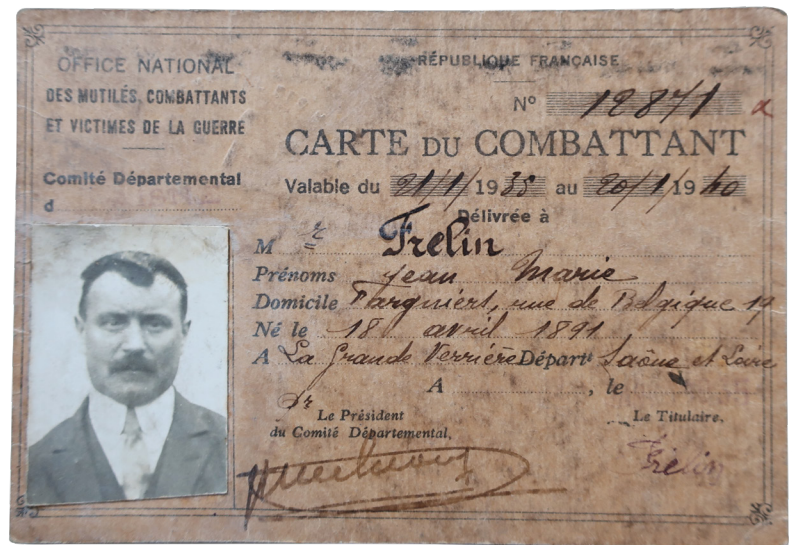 OFFICE NATIONAL
DES MUTILÉS, COMBATTANTS
ET VICTIMES DE LA GUERRE
Comité Départemental
d
RÉPUBLIQUE FRANÇAISE
N° 12871
CARTE DU COMBATTANT
Valable du 21/1/1935 au 20/1/1940
Délivrée à
M r Frelin
Prénoms Jean Marie
Domicile Fargniers, rue de Belgique 19
Né le 18 avril 1891
A La Grande Verrière Départt Saône et Loire
A , le
Le Président
du Comité Départemental,
Le Titulaire,
Frelin